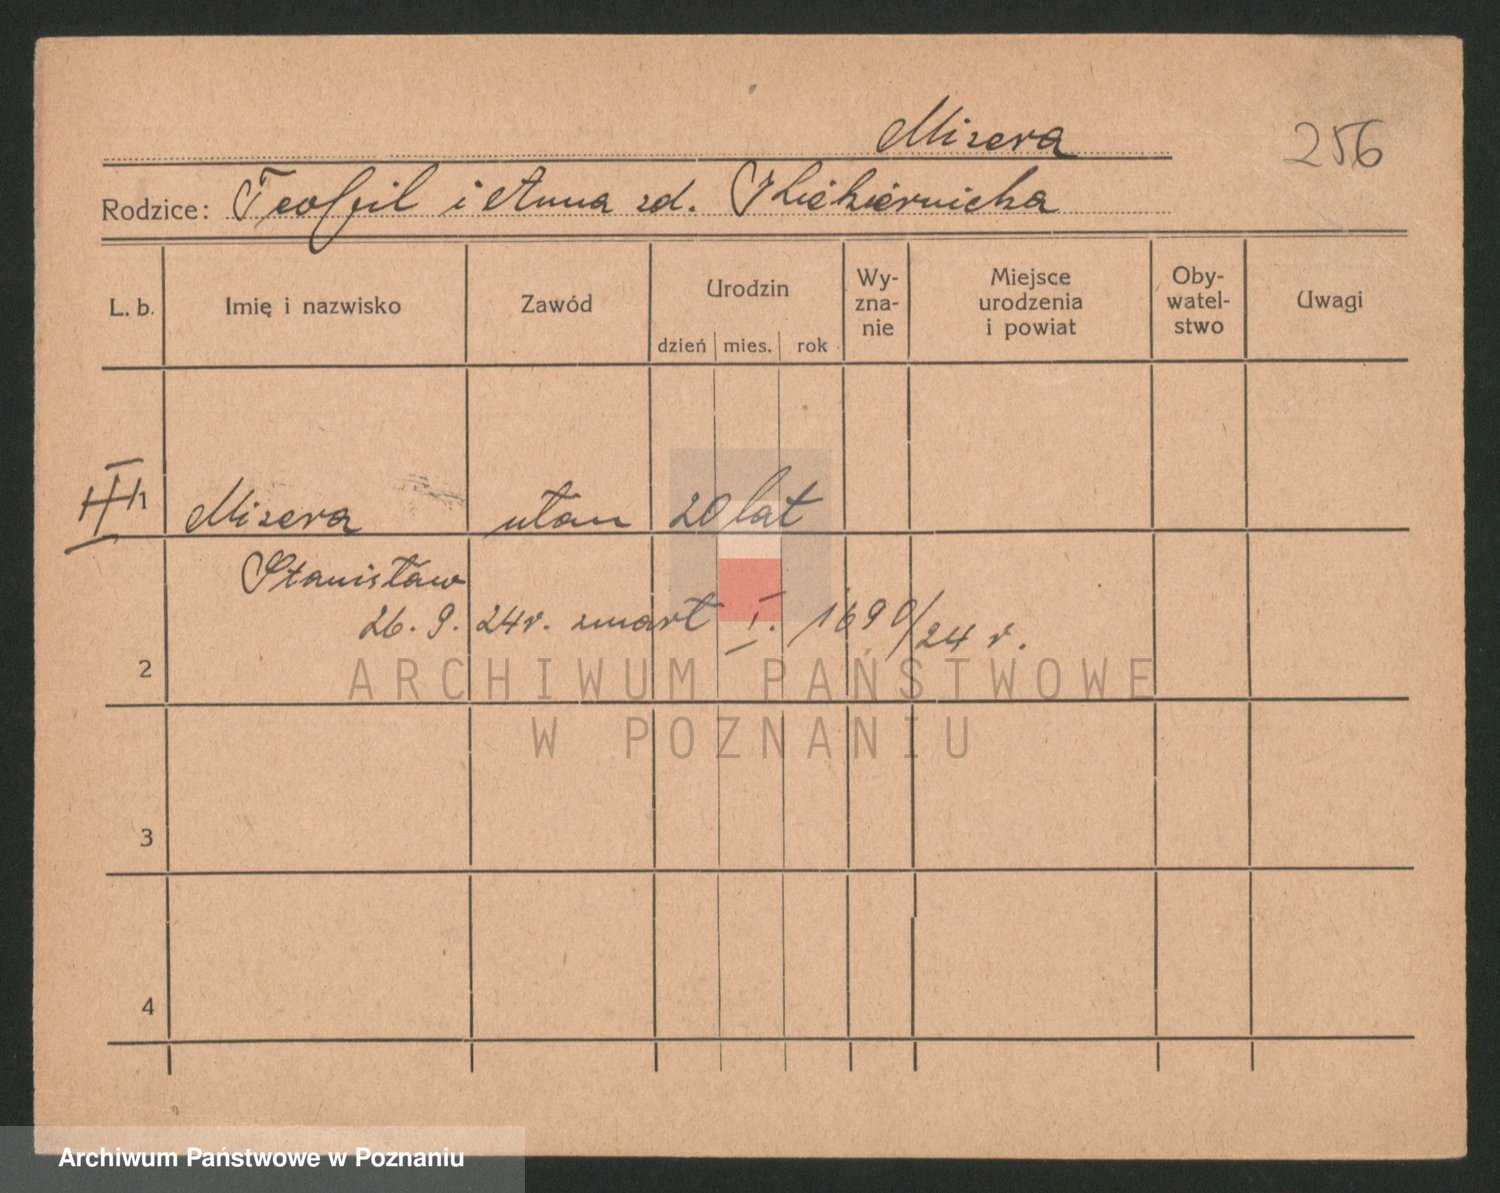 Misera
256
Rodzice: Teofil i Anna zd.
L. b. Imię i nazwisko Zawód Urodzin dzień mies. rok Wy-zna-nie Miejsce urodzenia i powiat Oby-watel-stwo Uwagi
1 Misera ułan 20 lat
Stanisław
26. 9. 24r. zmart I. 1690/24 r.
2
ARCHIWUM PAŃSTWOWE
W POZNANIU
3
4
Archiwum Państwowe w Poznaniu